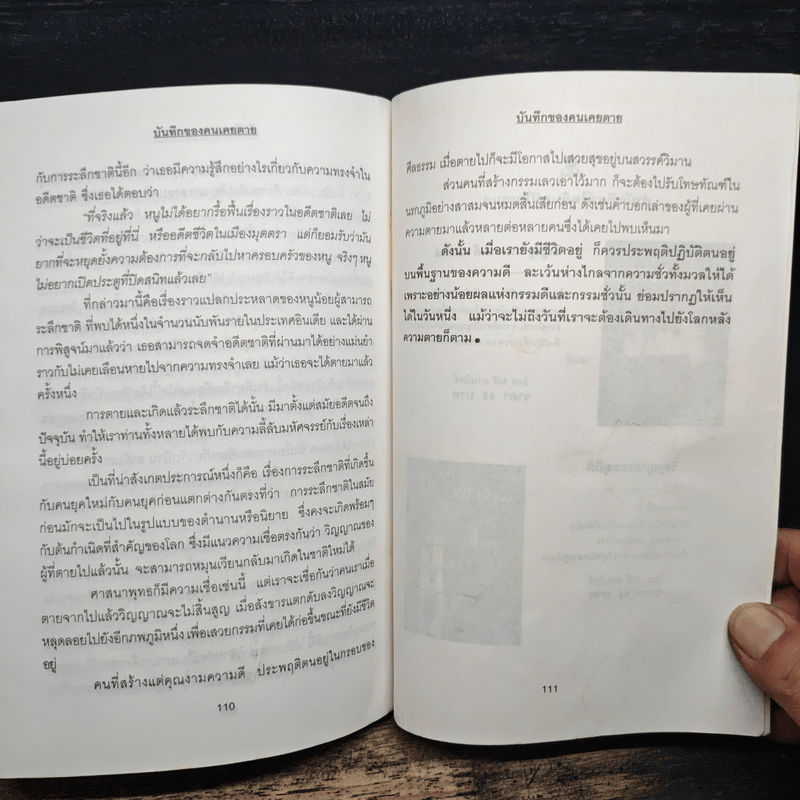 บันทึกของคนเคยตาย
กับการระลึกชาตินี้อีก ว่าเธอมีความรู้สึกอย่างไรเกี่ยวกับความทรงจำใน
อดีตชาติ ซึ่งเธอได้ตอบว่า
"ที่จริงแล้ว หนูไม่ได้อยากรื้อฟื้นเรื่องราวในอดีตชาติเลย ไม่
ว่าจะเป็นชีวิตที่อยู่ที่นี่ หรืออดีตชีวิตในเมืองมุตตรา แต่ก็ยอมรับว่ามัน
ยากที่จะหยุดยั้งความต้องการที่จะกลับไปหาครอบครัวของหนู จริงๆ หนู
ไม่อยากเปิดประตูที่ปิดสนิทแล้วเลย"
ที่กล่าวมานี้คือเรื่องราวแปลกประหลาดของหนูน้อยผู้สามารถ
ระลึกชาติ ที่พบได้หนึ่งในจำนวนนับพันรายในประเทศอินเดีย และได้ผ่าน
การพิสูจน์มาแล้วว่า เธอสามารถจดจำอดีตชาติที่ผ่านมาได้อย่างแม่นยำ
ราวกับไม่เคยเลือนหายไปจากความทรงจำเลย แม้ว่าจะเคยได้ตายมาแล้ว
ครั้งหนึ่ง
การตายและเกิดแล้วระลึกชาติได้นั้น มีมาตั้งแต่สมัยอดีตจนถึง
ปัจจุบัน ทำให้เราท่านทั้งหลายได้พบกับความลี้ลับมหัศจรรย์กับเรื่องเหล่า
นี้อยู่บ่อยครั้ง
เป็นที่น่าสังเกตประการณ์หนึ่งก็คือ เรื่องการระลึกชาติที่เกิดขึ้น
กับคนยุคใหม่กับคนยุคก่อนแตกต่างกันตรงที่ว่า การระลึกชาติในสมัย
ก่อนมักจะเป็นไปในรูปแบบของตำนานหรือนิยาย ซึ่งคงจะเกิดพร้อมๆ
กับต้นกำเนิดที่สำคัญของโลก ซึ่งมีแนวความเชื่อตรงกันว่า วิญญาณของ
ผู้ที่ตายไปแล้วนั้น จะสามารถหมุนเวียนกลับมาเกิดในชาติใหม่ได้
ศาสนาพุทธก็มีความเชื่อเช่นนี้ แต่เราจะเชื่อกันว่าคนเราเมื่อ
ตายจากไปแล้ววิญญาณจะไม่สิ้นสูญ เมื่อสังขารแตกดับลงวิญญาณจะ
หลุดลอยไปยังอีกภพภูมิหนึ่ง เพื่อเสวยกรรมที่เคยได้ก่อขึ้นขณะที่ยังมีชีวิต
อยู่
คนที่สร้างแต่คุณงามความดี ประพฤติตนอยู่ในกรอบของ
110
บันทึกของคนเคยตาย
ศีลธรรม เมื่อตายไปก็จะมีโอกาสไปเสวยสุขอยู่บนสวรรค์วิมาน
ส่วนคนที่สร้างกรรมเลวเอาไว้มาก ก็จะต้องไปรับโทษทัณฑ์ใน
นรกภูมิอย่างสาสมจนหมดสิ้นเสียก่อน ดังเช่นคำบอกเล่าของผู้ที่เคยผ่าน
ความตายมาแล้วหลายต่อหลายคนซึ่งได้เคยไปพบเห็นมา
ดังนั้น เมื่อเรายังมีชีวิตอยู่ ก็ควรประพฤติปฏิบัติตนอยู่
บนพื้นฐานของความดี ละเว้นห่างไกลจากความชั่วทั้งมวลให้ได้
เพราะอย่างน้อยผลแห่งกรรมดีและกรรมชั่วนั้น ย่อมปรากฏให้เห็น
ได้ในวันหนึ่ง แม้ว่าจะไม่ถึงวันที่เราจะต้องเดินทางไปยังโลกหลัง
ความตายก็ตาม
111